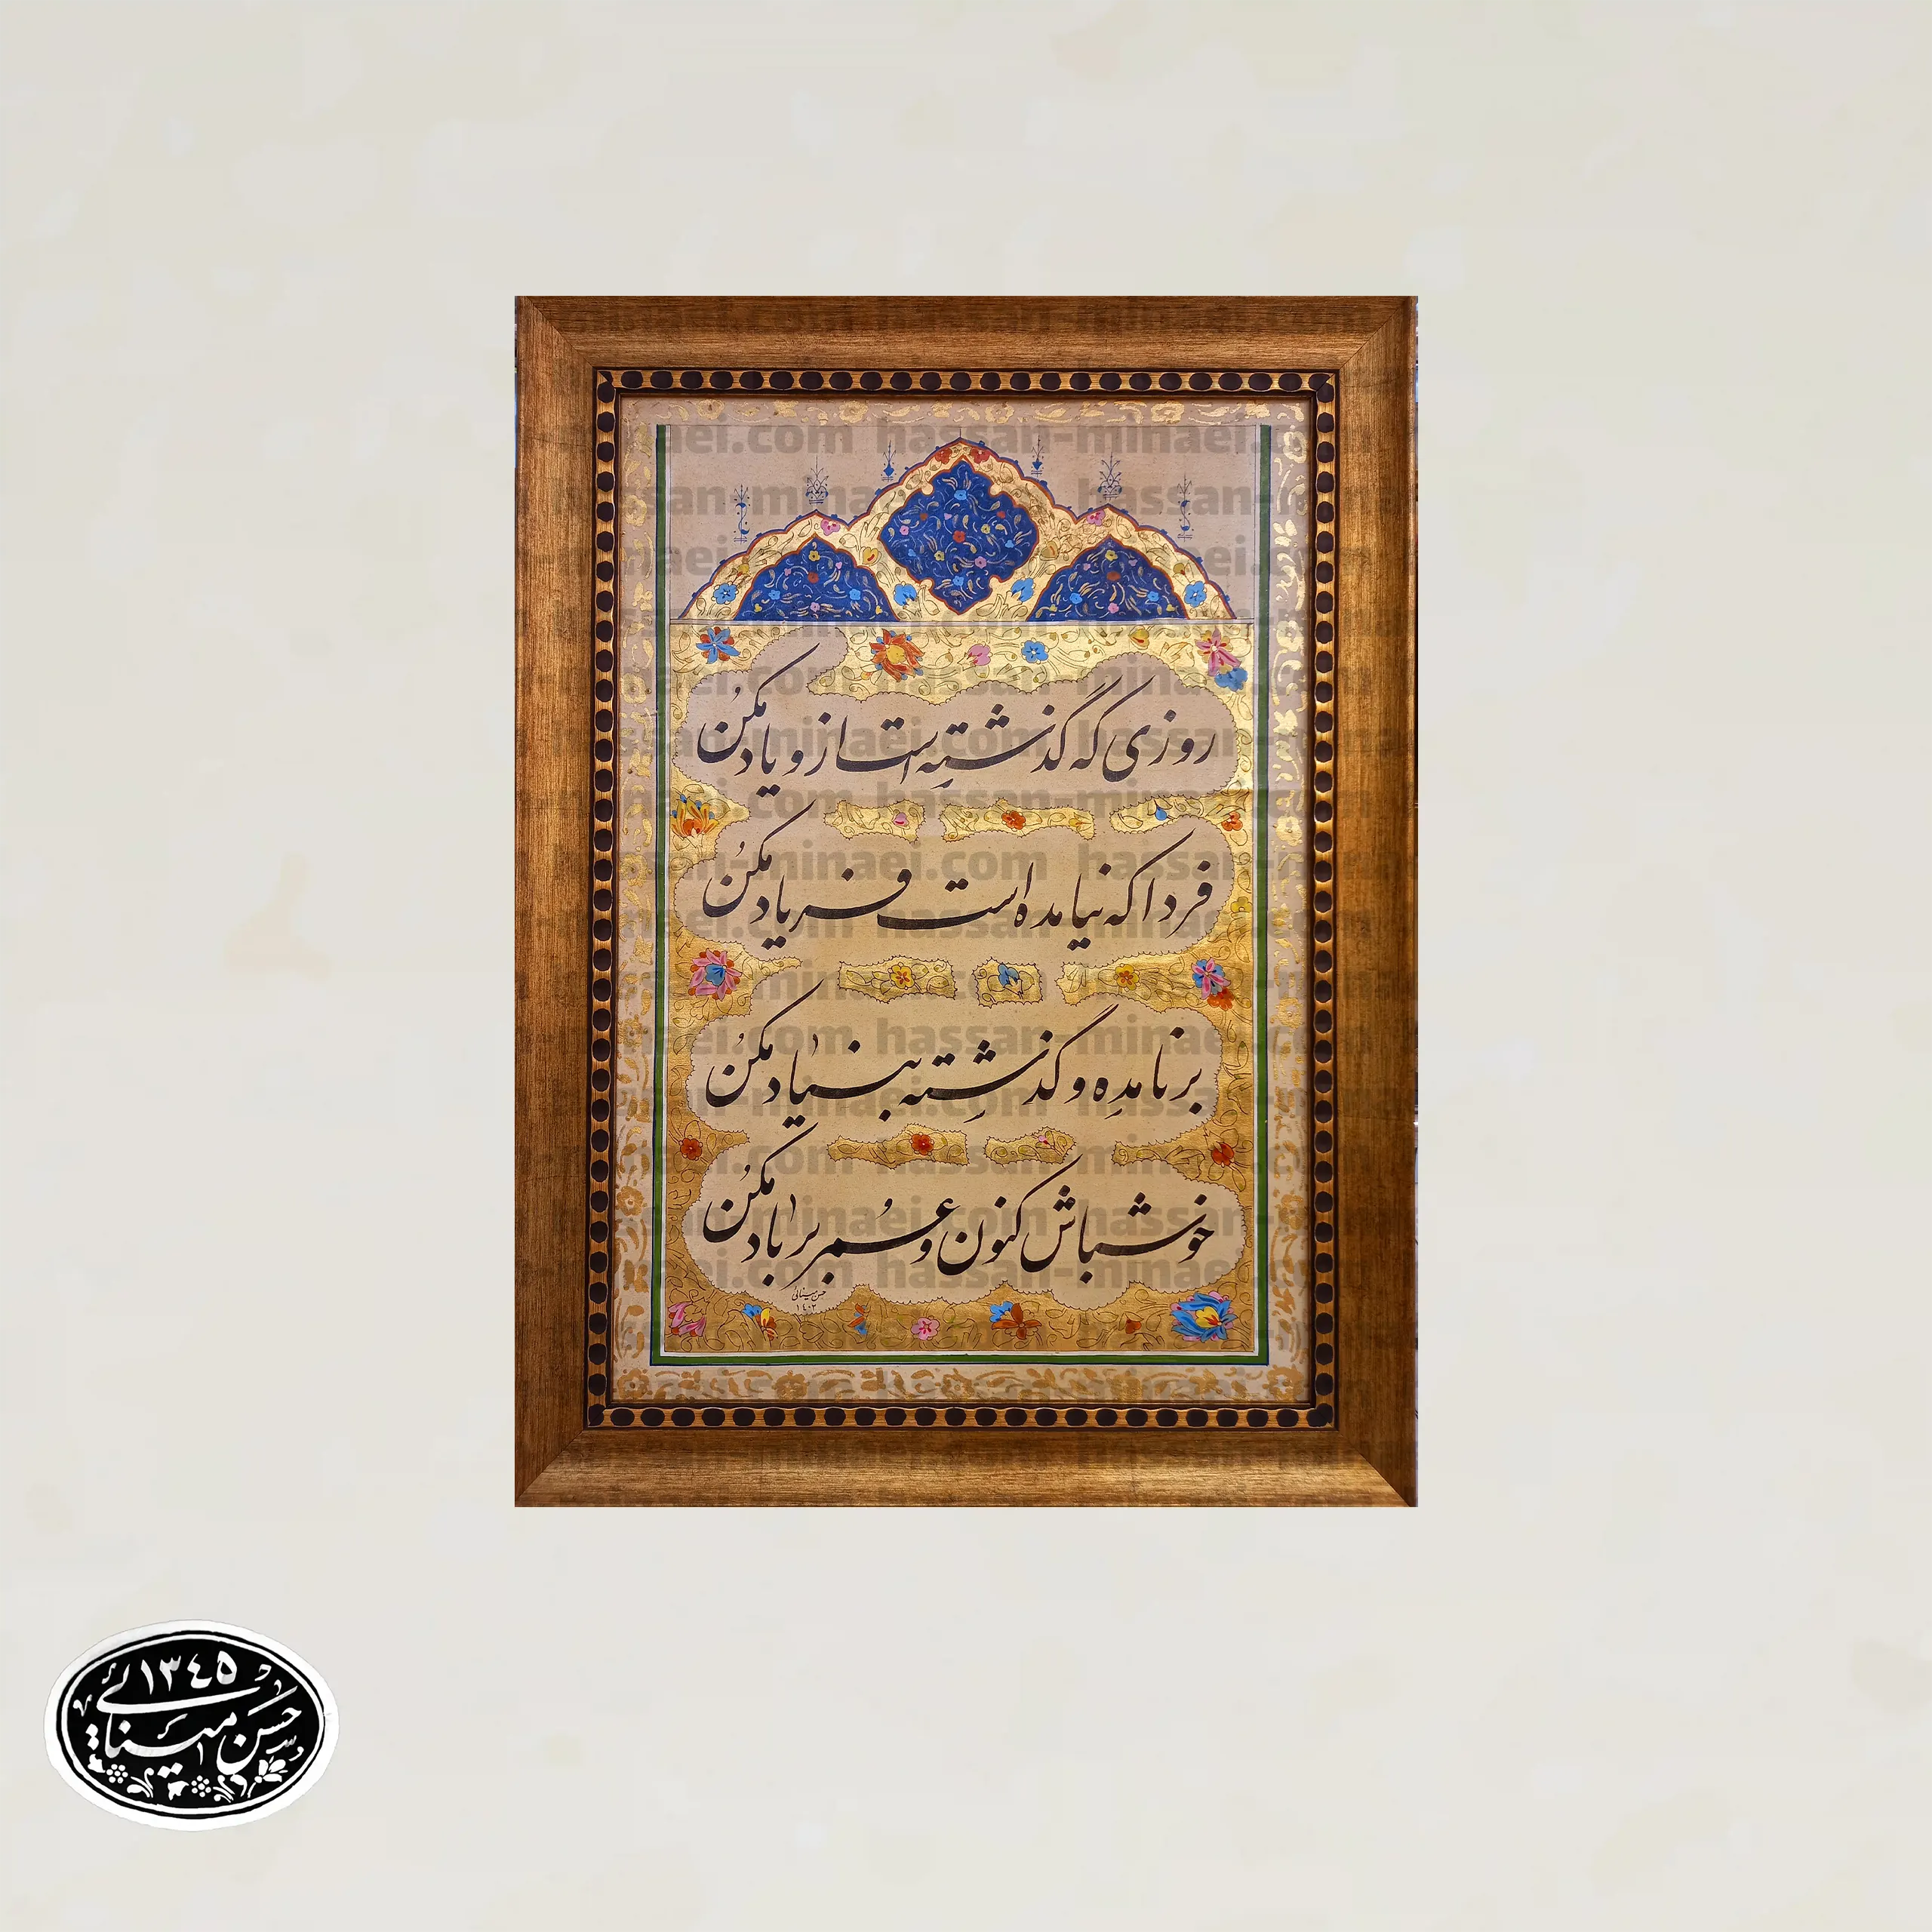 روزی که گذشته است ازو یاد مکن
فردا که نیامده است فریاد مکن
بر نامده و گذشته بنیاد مکن
خوش باش کنون و عمر بر باد مکن
حسن مینائی
۱۴۰۲
۱۳۴۵
حسن مینائی
hassan-minaei.com